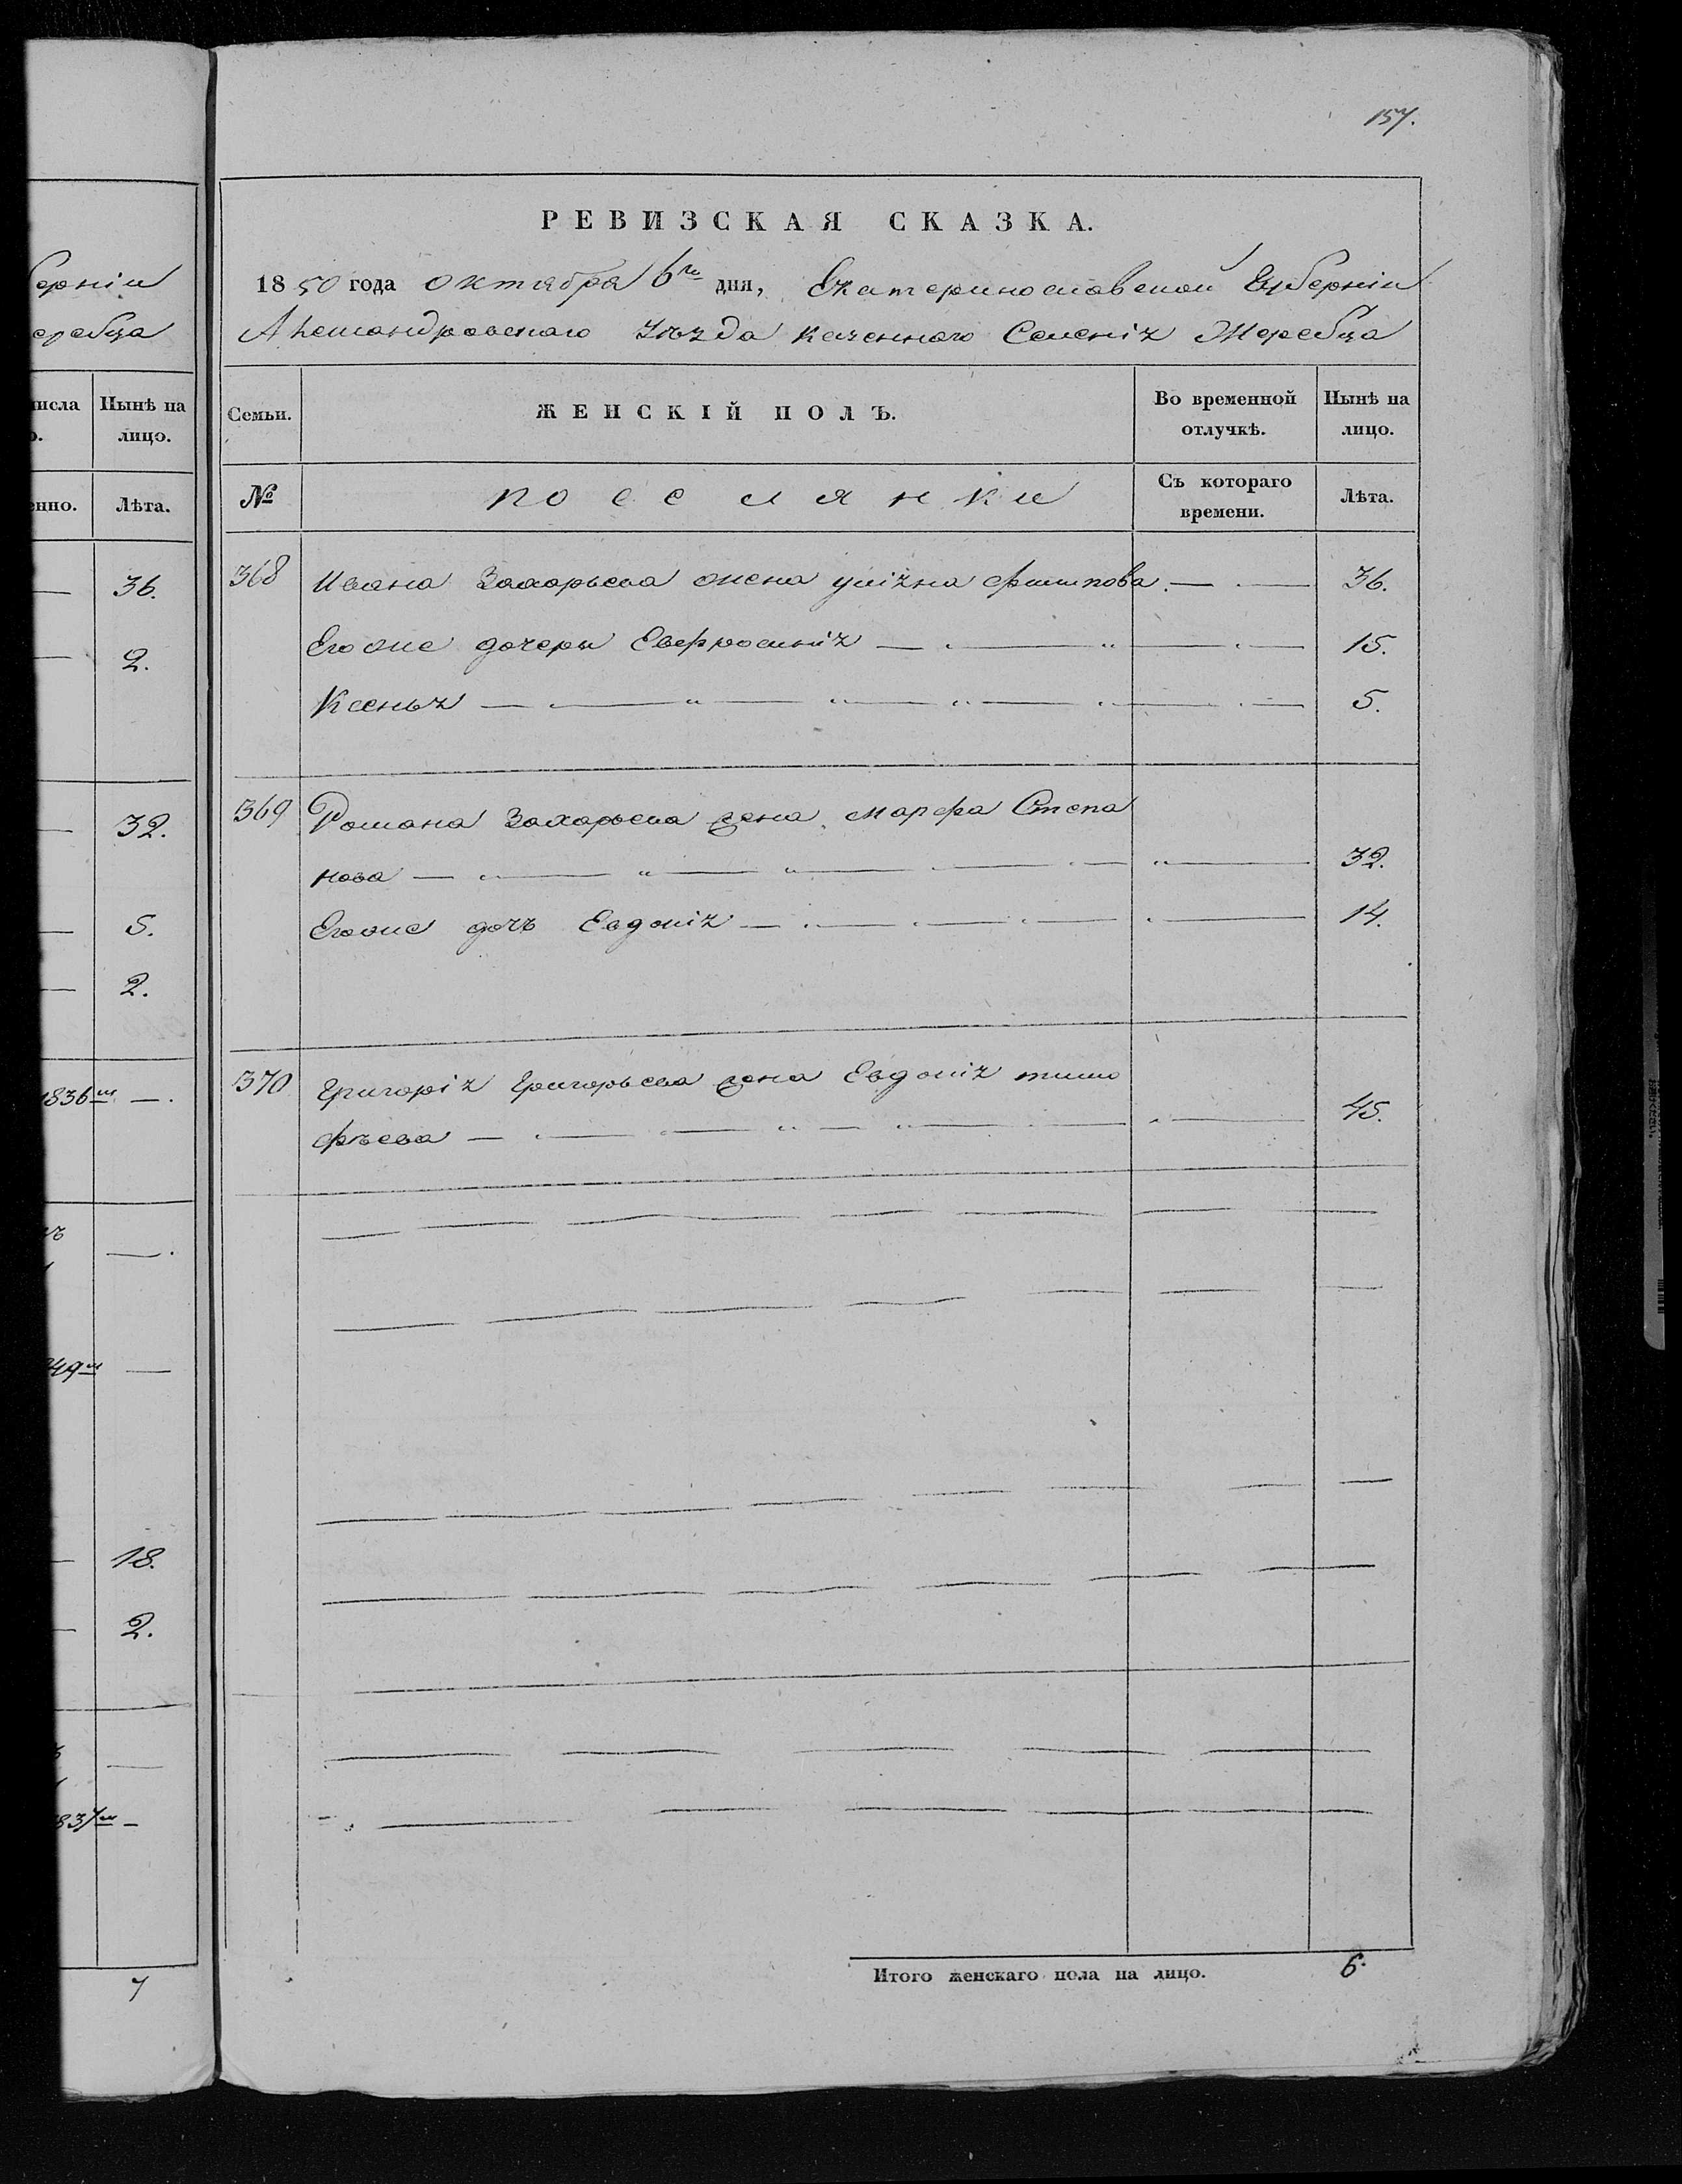 ерніи
еребца
исла Нынѣ на
о. лицо.
енно. Лѣта.
36.
2.
32.
5.
2.
1836м
ъ
49м
18.
2.
837м
7
157.
РЕВИЗСКАЯ СКАЗКА.
1850 года октября 6го дня, Екатеринославской Губерніи
Александровскаго Уѣзда казеннаго Селенія Жеребца
Семьи. ЖЕНСКІЙ ПОЛЪ. Во временной отлучкѣ. Нынѣ на лицо.
№ поселянки Съ котораго времени. Лѣта.
368 Ивана Захарьева жена Уліяна Филипова 36.
Егоже дочери Евфросинія 15.
Ксенья 5.
369 Романа Захарьева жена Марфа Степа
нова 32.
Егоже дочь Евдокія 14.
370 Григорія Григорьева жена Евдокія Тимо
фѣева 45.
Итого женскаго пола на лицо. 6.